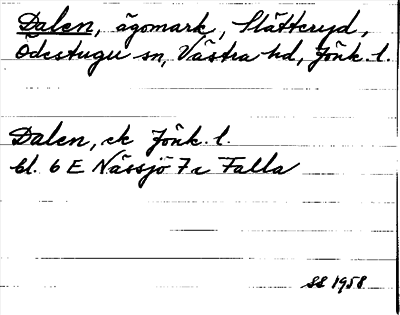 Dalen, ägomark, Slätteryd,
Ödestugu sn, Västra hd, Jönk. l.
Dalen, ek Jönk. l.
bl. 6 E Nässjö 7c Falla
SS 1958